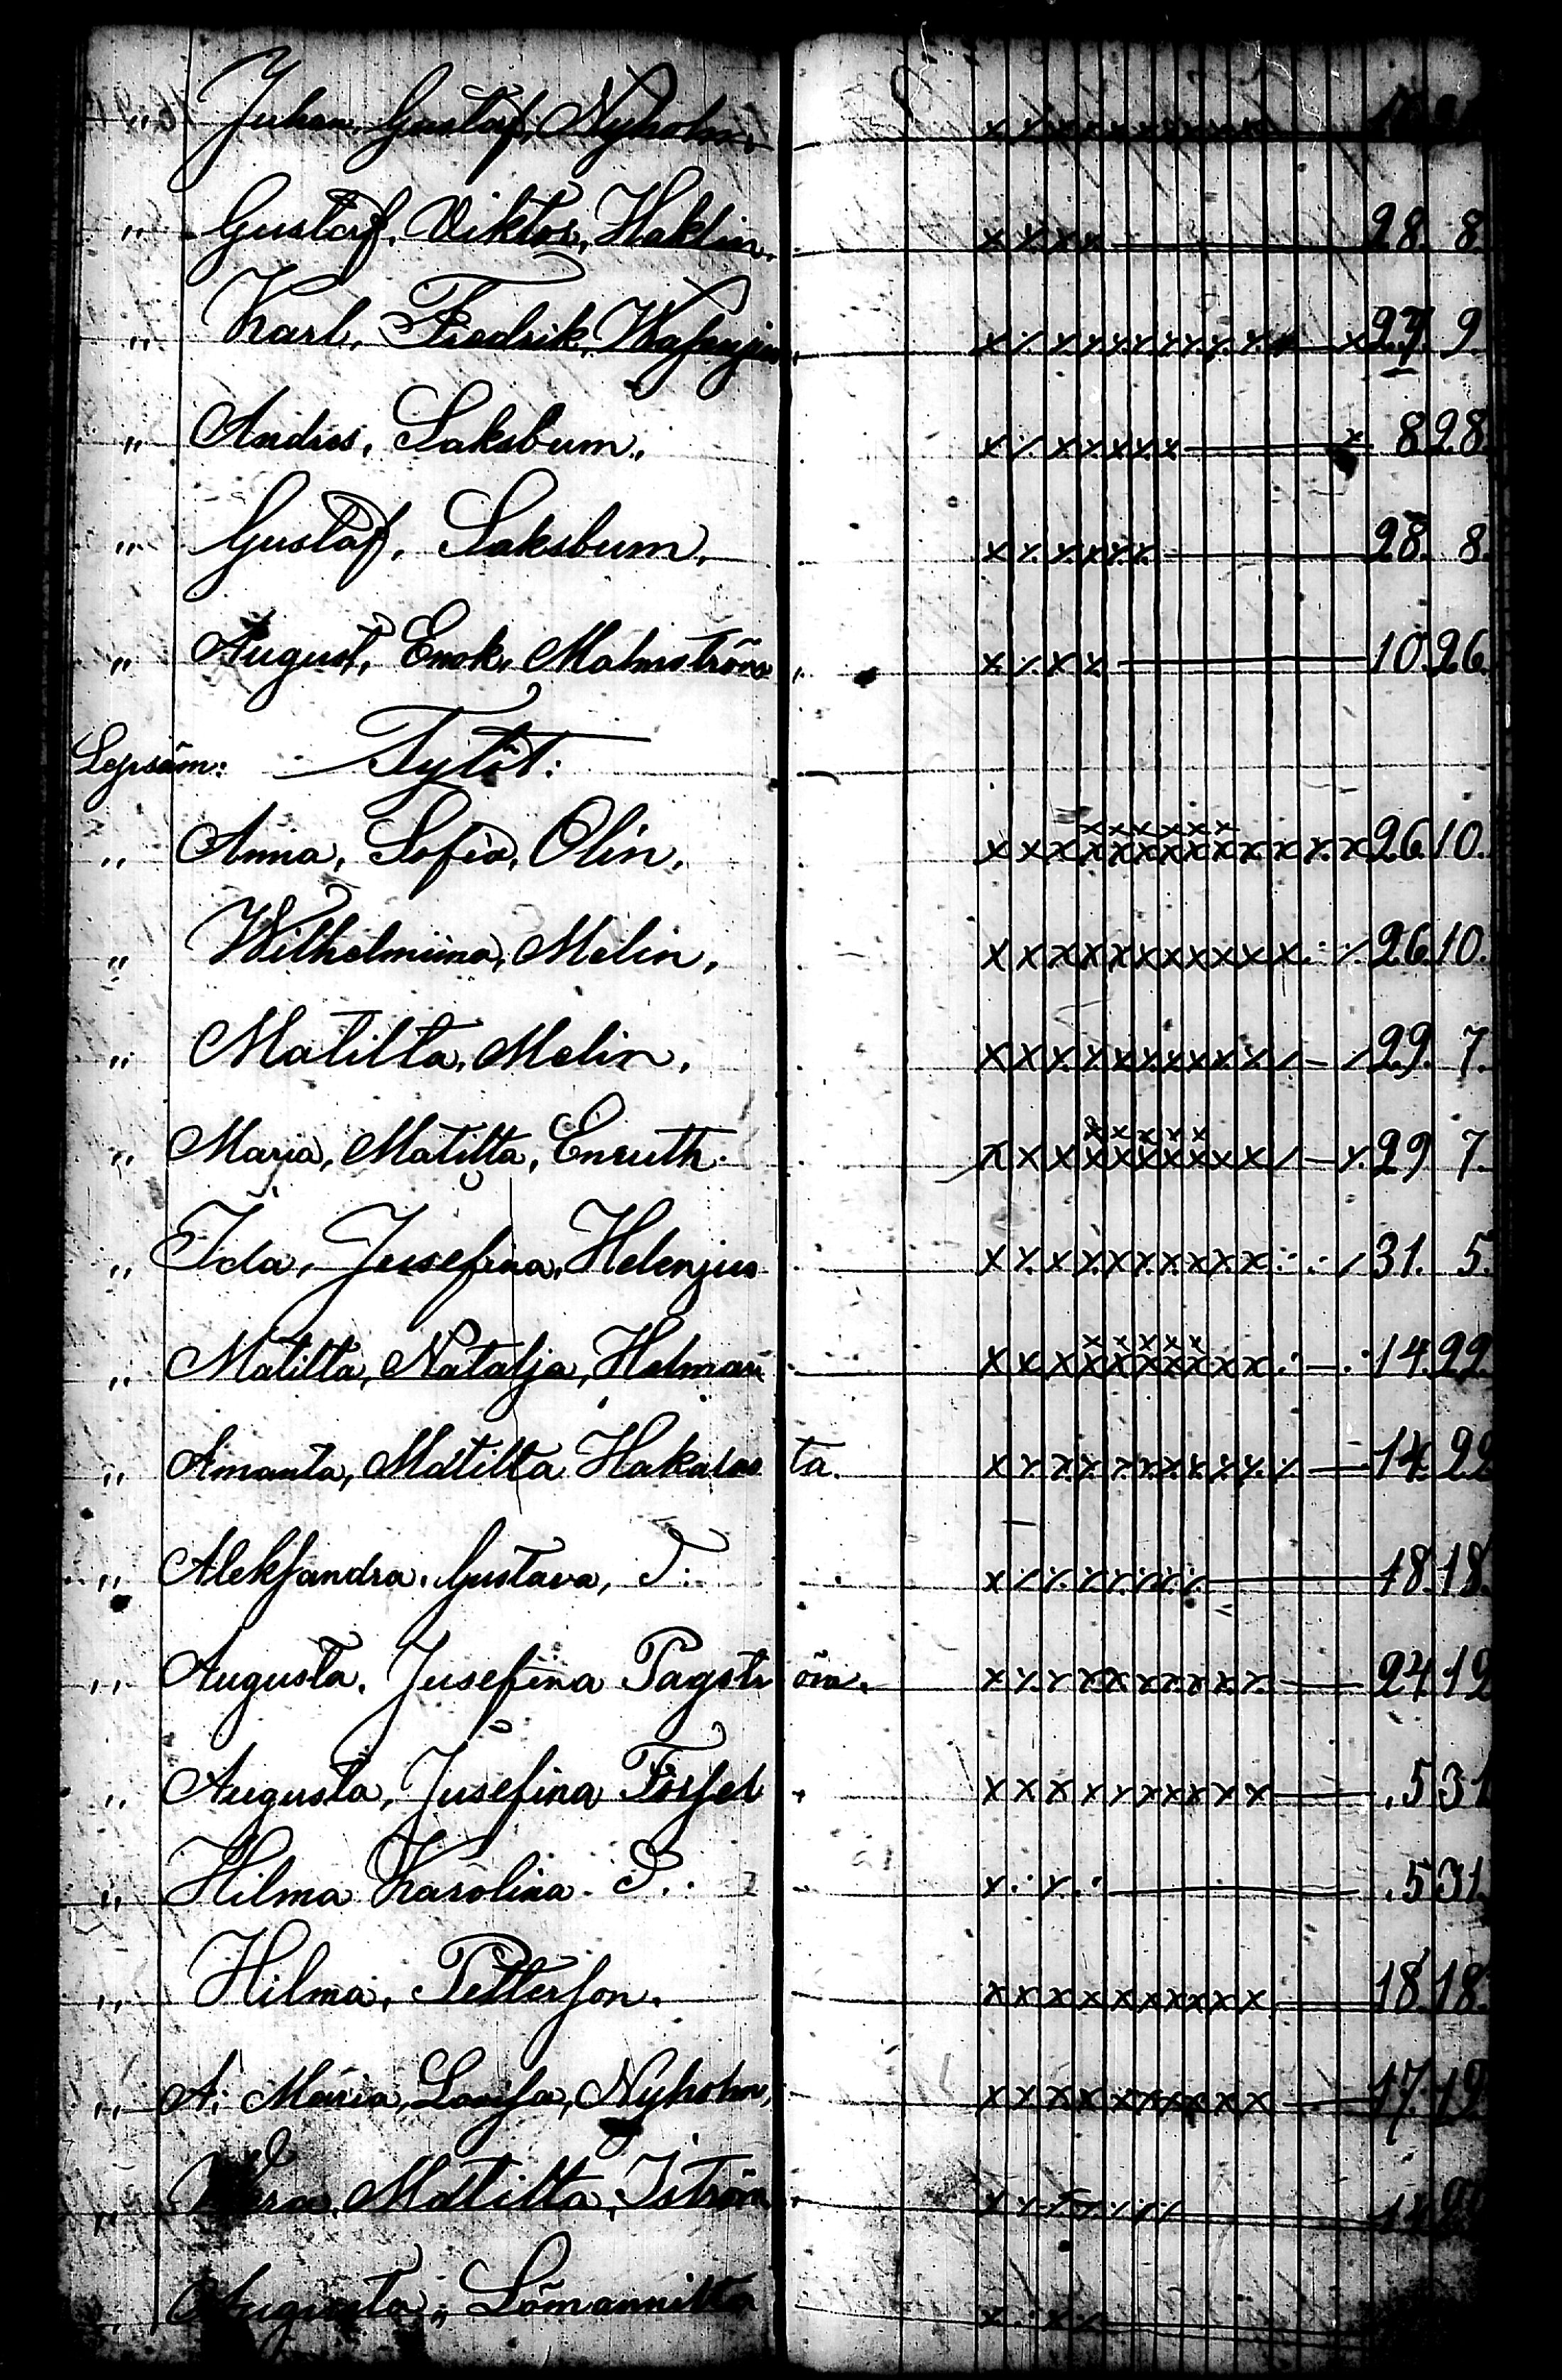 " Juhan, Gustaf, Nyholm.
" Gustaf, Viktor, Haklin. 28. 8.
" Karl, Fredrik, 27. 9.
" Andres, Saksbum. 8 28.
" Gustaf, Saksbum. 28. 8.
" August, Enok, Malmström 10 26.
Lepsäm: Tytöt:
" Anna, Sofia, Olin. 26 10.
" Wilhelmiina, Melin. 26. 10.
" Matilta, Melin. 29. 7.
" Maria, Matilta, Enruth. 29 7.
" Ida, Jusefina, Helenjus 31. 5.
" Matilta, Natalja, Holman 14. 22.
" Amanta, Matilta Hakalas ta. 14. 22
" Aleksandra. Gustava, T: 18. 18.
" Augusta. Jusefina Pagstr öm. 24 12
" Augusta, Jusefina Forsel . 5 31
" Hilma Karolina. T. . 5 31.
" Hilma, Petterson. 18. 18.
" A: Maria, Lovisa, Nyholm, 17. 19
" Matilta, Iström
" Augusta,